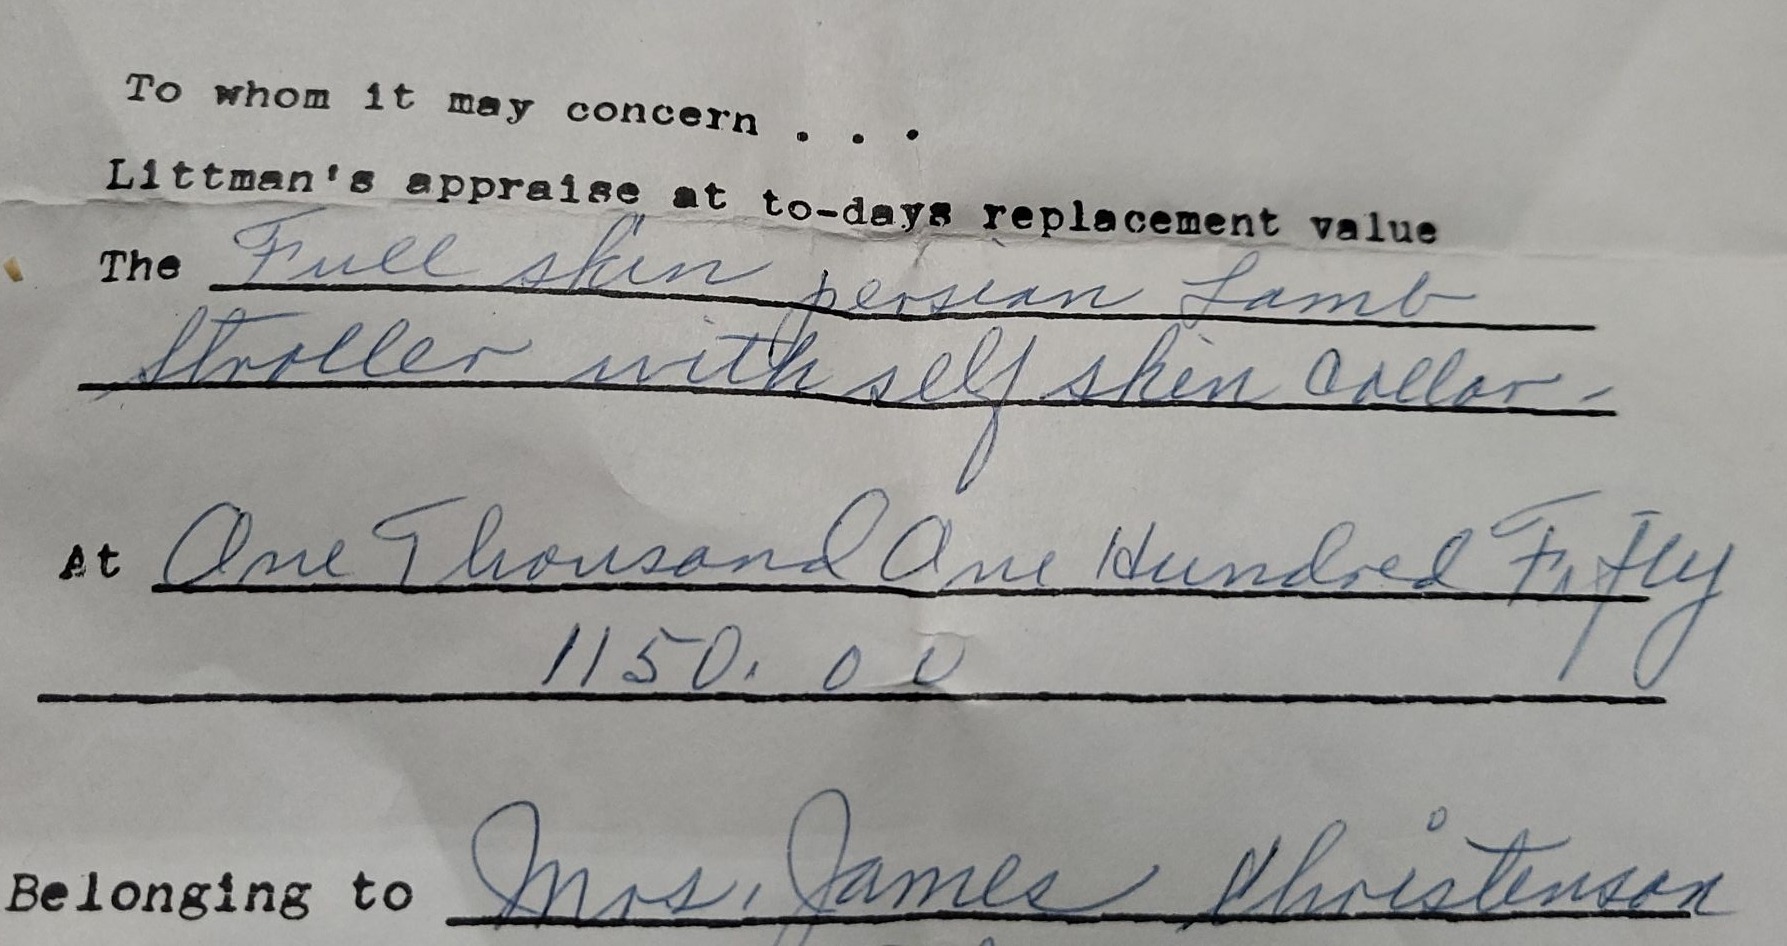 To whom it may concern . . .
Littman's appraise at to-days replacement value
The Full skin persian Lamb
Stroller with self skin Collar -
At One Thousand One Hundred Fifty
1150.00
Belonging to Mrs. James Christenson